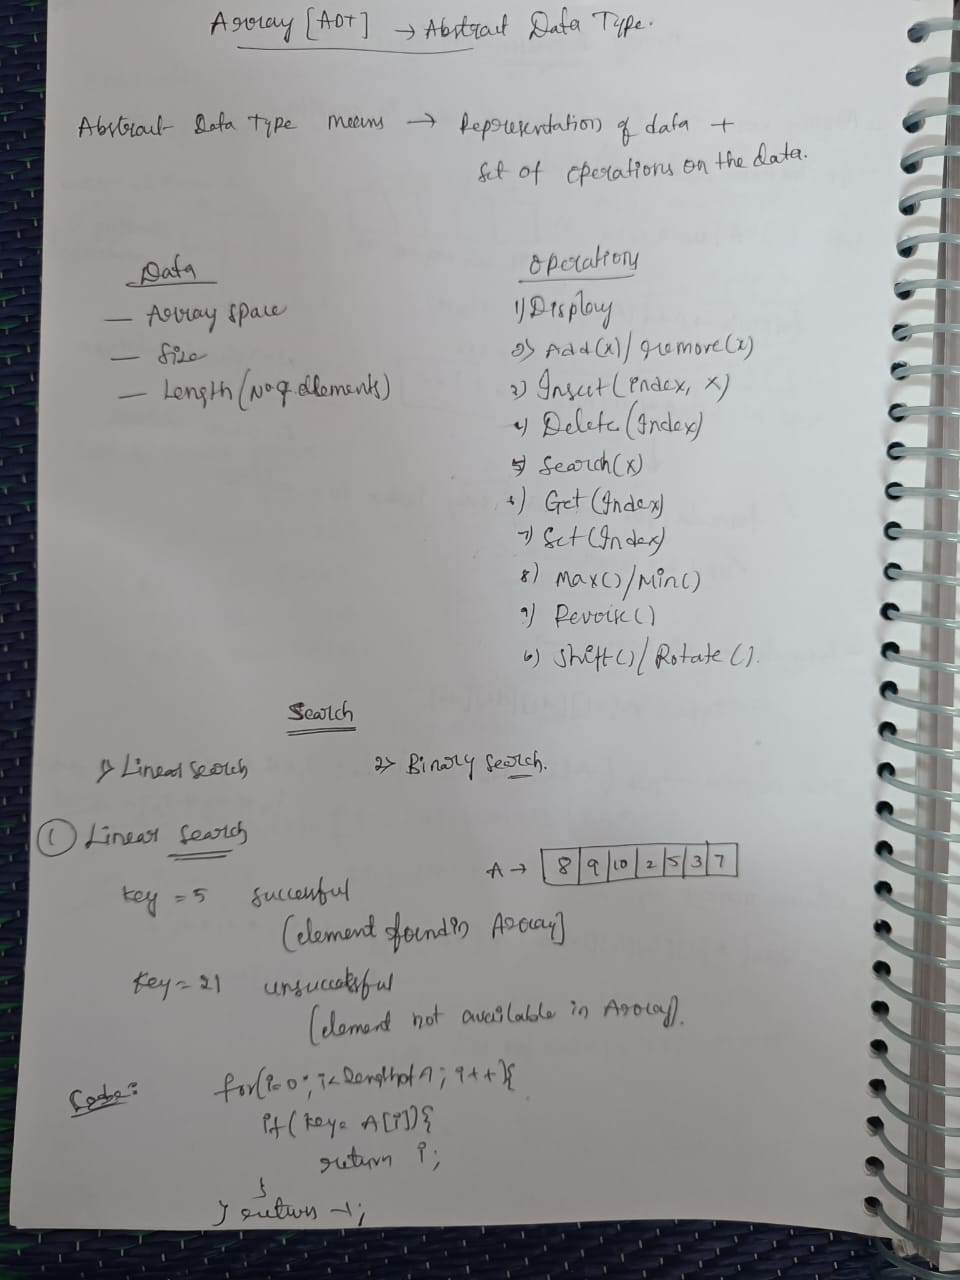 Array [ADT] → Abstract Data Type.
Abstract Data Type means → Representation of data +
set of operations on the data.
Data
— Array space
— Size
— Length (No of elements)
Operation
1) Display
2) Add(x)/remove(x)
3) Insert (index, x)
4) Delete (Index)
5) Search(x)
6) Get (Index)
7) Set (Index)
8) Max()/Min()
9) Reverse()
10) Shift()/Rotate().
Search
1) Linear Search
2) Binary Search.
① Linear Search
A → 8 9 10 2 5 3 7
Key = 5 successful
(element found in Array)
Key = 21 unsuccessful
(element not available in Array).
Code:
for(i=0; i<length of A; i++){
if(key= A[i]){
return i;
}
} return -1;